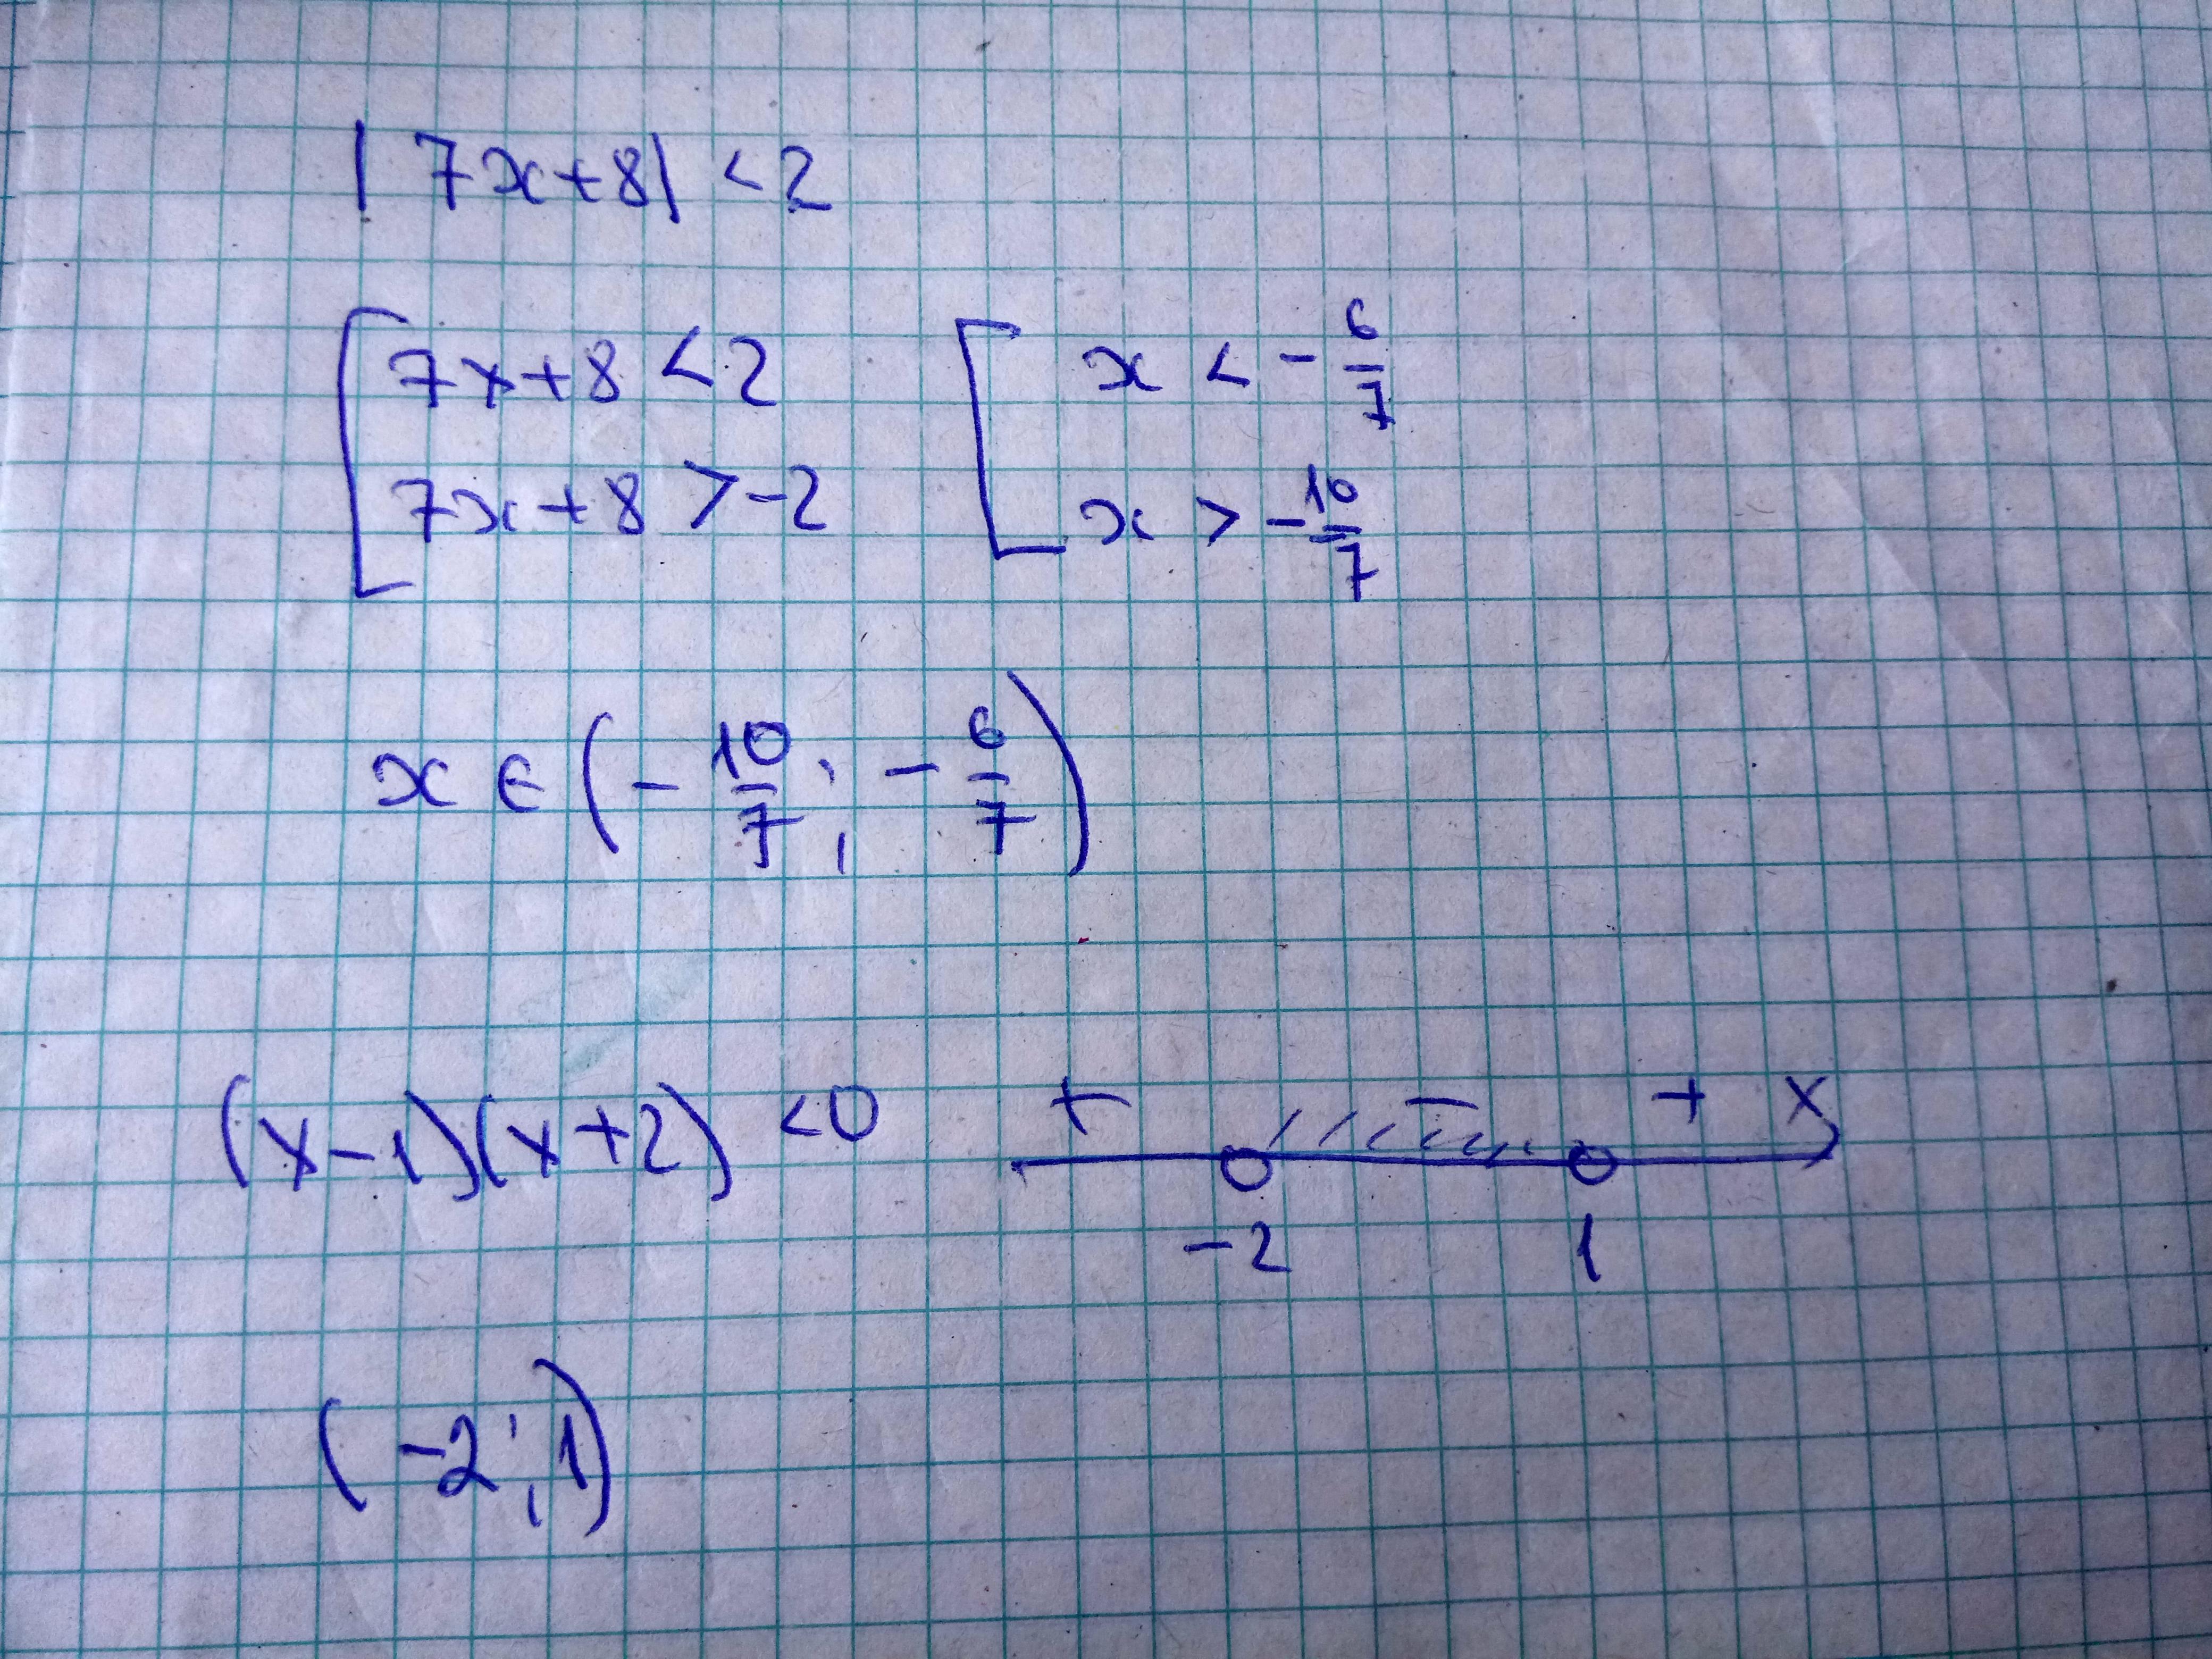 |7x+8| <2
[ 7x+8 <2 [ x < - 6/7
7x+8 >-2 x > - 10/7
x ∈ (- 10/7 ; - 6/7)
(x-1)(x+2) <0 + - + x
-2 1
(-2;1)